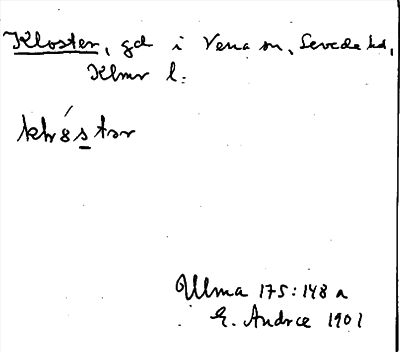 Kloster, gd i Vena sn, Sevede hd,
Klmr l.
Ulma 175:148 a
E. Andrée 1901